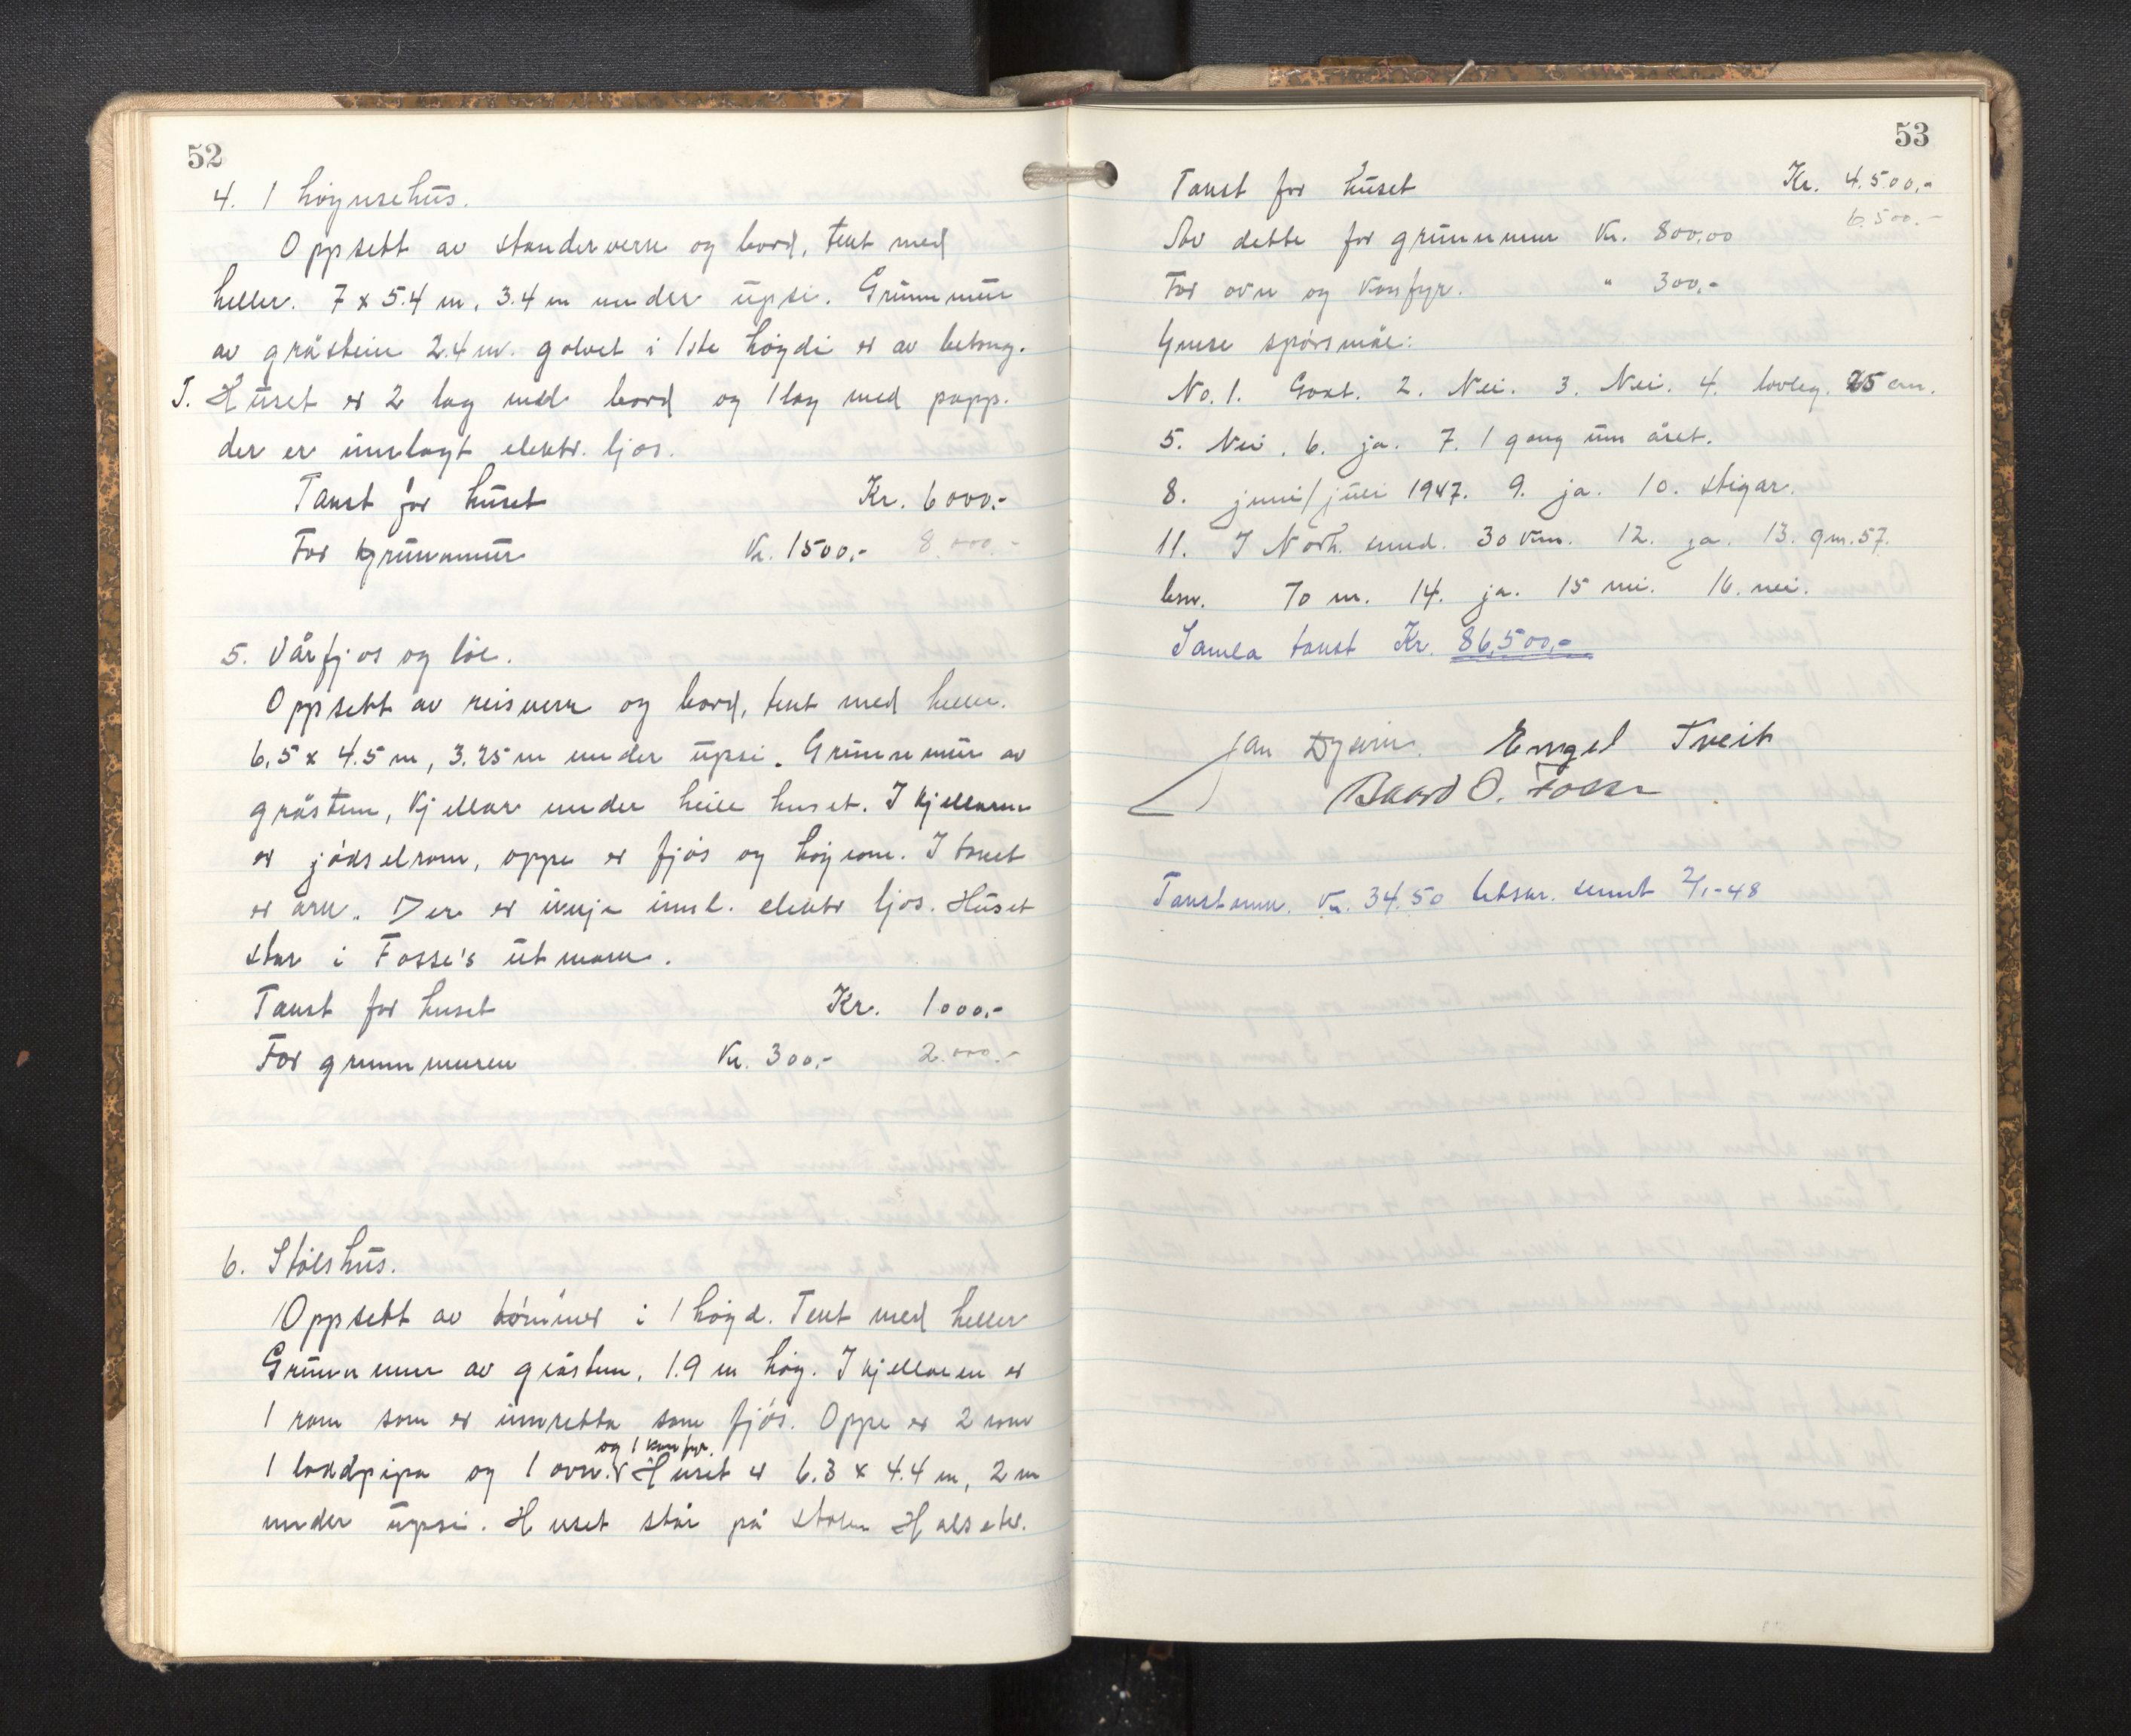 52
4. 1 høgnsehus.
Oppsett av standerverk og bord, tekt med
heller. 7 x 5.4 m, 3.4 m under upsi. Grunnmur
av gråstein 2.4 m. golvet i 1ste høgdi er av betong.
I. Huset er 2 lag med bord og 1 lag med papp.
der er innlagt elektr. ljos.
Takst for huset Kr. 6000.-
For grunnmur Kr. 1500,- 8.000.-
5. Vårfjos og løe.
Oppsett av reisverk og bord, tekt med heller.
6,5 x 4.5 m, 3.25 m under upsi. Grunnmur av
gråstein, kjellar under heile huset. I kjellaren
er jødselrom, oppe er fjøs og høyrom. I taket
er ark. Der er inkje innl. elektr ljos. Huset
står i Fosse's utmark.
Takst for huset Kr. 1000.-
For grunnmuren Kr. 300,- 2.000.-
6. Stølshus.
Oppsett av tømmer i 1 høgd. Tekt med heller
Grunnmur av gråstein, 1.9 m høg. I kjellaren er
1 rom som er innretta som fjøs. Oppe er 2 rom
og 1 komfyr.
1 loddpipa og 1 ovn. Huset er 6.3 x 4.4 m, 2 m
under upsi. Huset står på stølen Halset
53
Takst for huset Kr. 4.500,-
6.500.-
Av dette for grunnmur Kr. 800,00
For ovn og komfyr. " 300,-
Ymse spørsmål:
No. 1. Godt. 2. Nei. 3. Nei. 4. lovleg. 25 cm.
5. Nei. 6. ja. 7. 1 gong um året.
8. juni/juli 1947. 9. ja. 10. stigar.
11. I Norh. sund. 30 km. 12. ja. 13. gm. 57.
70 m. 14. ja. 15 nei. 16. nei.
Samla takst Kr. 86,500,-
Jan Engel Tveit
Baard O. Fosse
Kr. 34.50 sendt 2/1-48